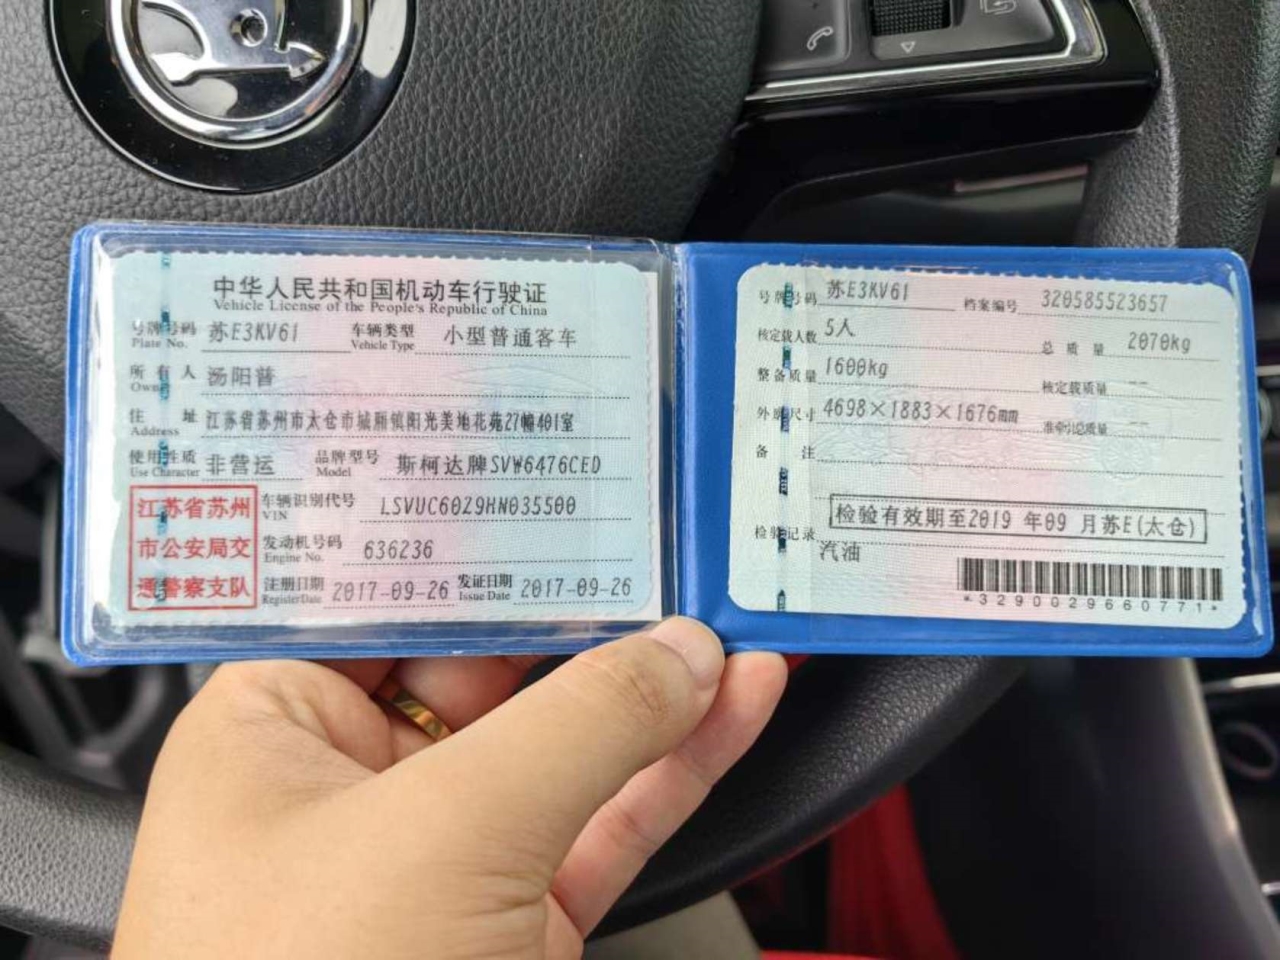 中华人民共和国机动车行驶证
Vehicle License of the People's Republic of China
号牌号码 苏E3KV61 车辆类型 小型普通客车
Plate No. Vehicle Type
所有人 汤阳普
Owner
住址 江苏省苏州市太仓市城厢镇阳光美地花苑27幢401室
Address
使用性质 非营运 品牌型号 斯柯达牌SVW6476CED
Use Character Model
江苏省苏州
市公安局交
通警察支队
车辆识别代号 LSVUC60Z9HN035500
VIN
发动机号码 636236
Engine No.
注册日期 2017-09-26 发证日期 2017-09-26
Register Date Issue Date
号牌号码 苏E3KV61 档案编号 320585523657
核定载人数 5人 总质量 2070kg
整备质量 1600kg 核定载质量 --
外廓尺寸 4698×1883×1676mm 准牵引总质量 --
备注
检验有效期至2019年09月苏E(太仓)
检验记录
汽油
*3290029660771*